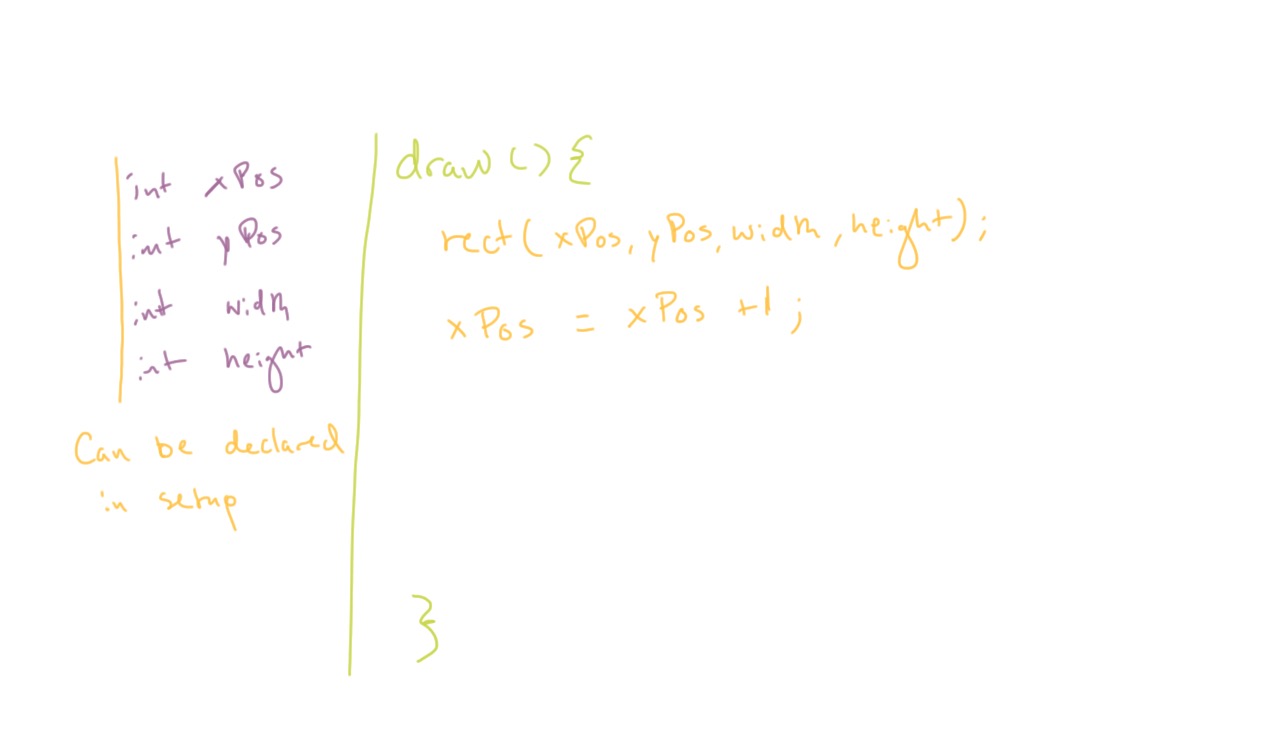 int xPos
int yPos
int width
int height
Can be declared
in setup
draw () {
rect( xPos, yPos, width, height);
xPos = xPos +1;
}